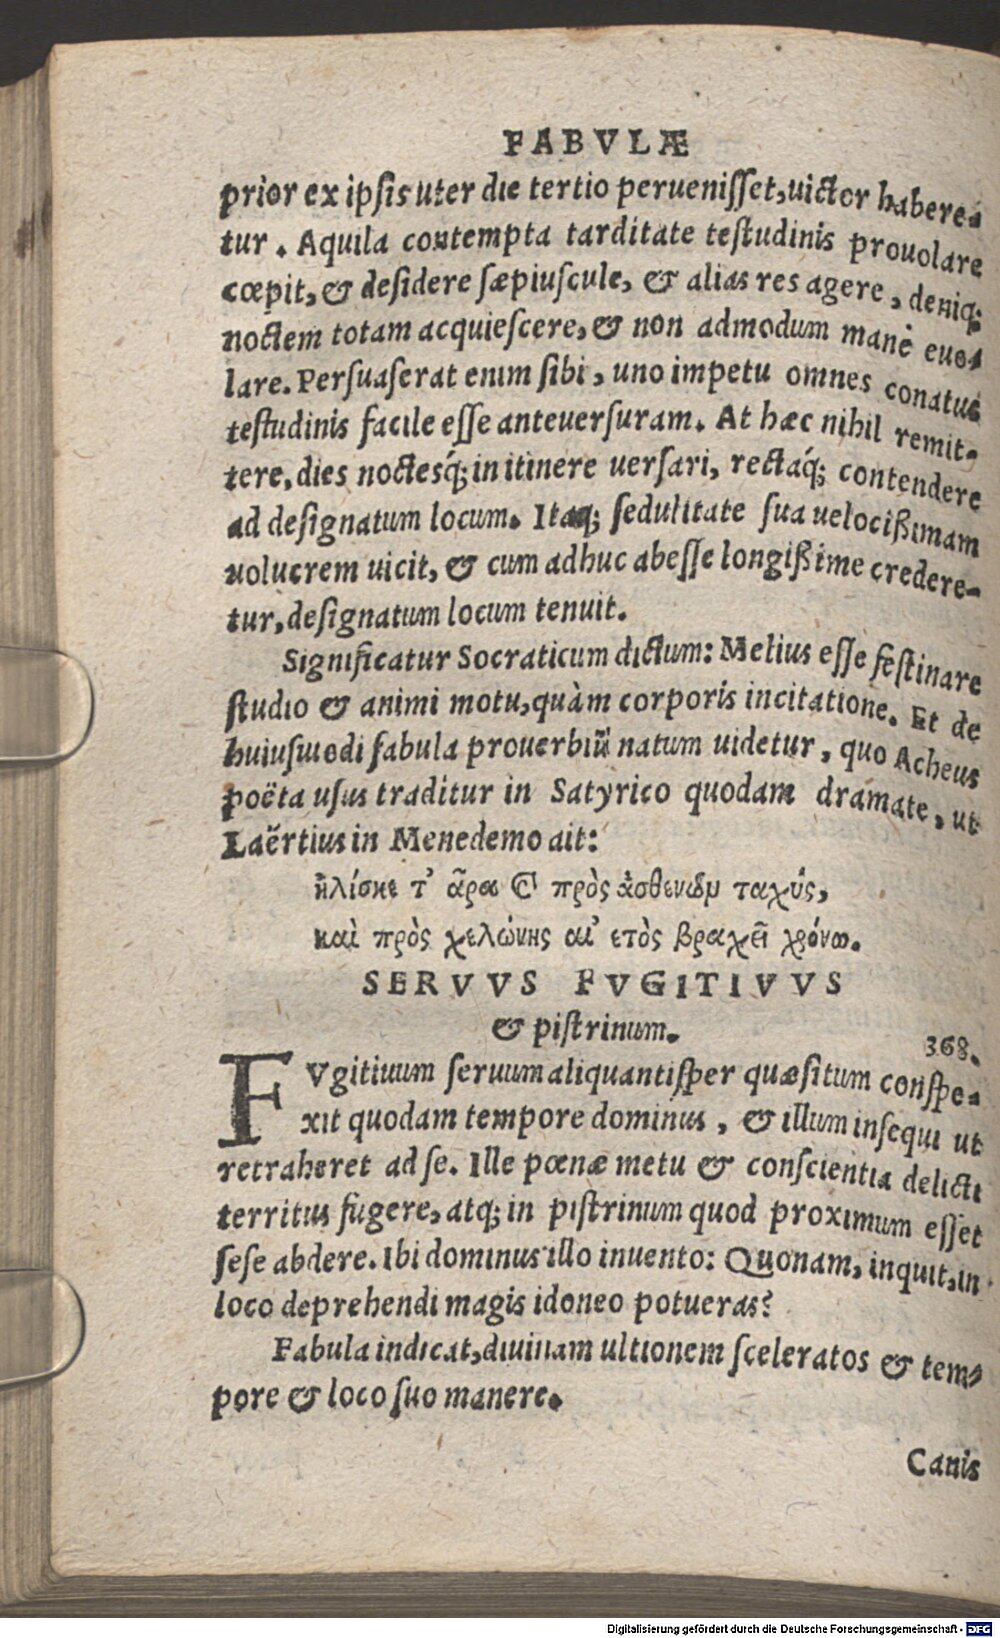 FABVLÆ
prior ex ipsis uter die tertio peruenisset, uictor habere-
tur. Aquila contempta tarditate testudinis prouolare
cœpit, & desidere sæpiuscule, & alias res agere, deniq;
noctem totam acquiescere, & non admodum manè euo-
lare. Persuaserat enim sibi, uno impetu omnes conatus
testudinis facile esse anteuersuram. At hæc nihil remit-
tere, dies noctesq́; in itinere uersari, rectaq́; contendere
ad designatum locum. Itaq; sedulitate sua uelocißimam
uolucrem uicit, & cum adhuc abesse longißime credere-
tur, designatum locum tenuit.
Significatur Socraticum dictum: Melius esse festinare
studio & animi motu, quàm corporis incitatione. Et de
huiusmodi fabula prouerbiũ natum uidetur, quo Acheus
poëta usus traditur in Satyrico quodam dramate, ut
Laërtius in Menedemo ait:
ἡλίσκε τ' ἆρα καὶ πρὸς ἀσθενῶν ταχύς,
καὶ πρὸς χελώνης αἰετὸς βραχεῖ χρόνῳ.
SERVVS FVGITIVVS
& pistrinum.
368.
FVgitiuum seruum aliquantisper quæsitum conspe-
xit quodam tempore dominus, & illum insequi ut
retraheret ad se. Ille pœnæ metu & conscientia delicti
territus fugere, atq; in pistrinum quod proximum esset
sese abdere. Ibi dominus illo inuento: Quonam, inquit, in
loco deprehendi magis idoneo potueras?
Fabula indicat, diuinam ultionem sceleratos & tem-
pore & loco suo manere.
Canis
Digitalisierung gefördert durch die Deutsche Forschungsgemeinschaft - DFG